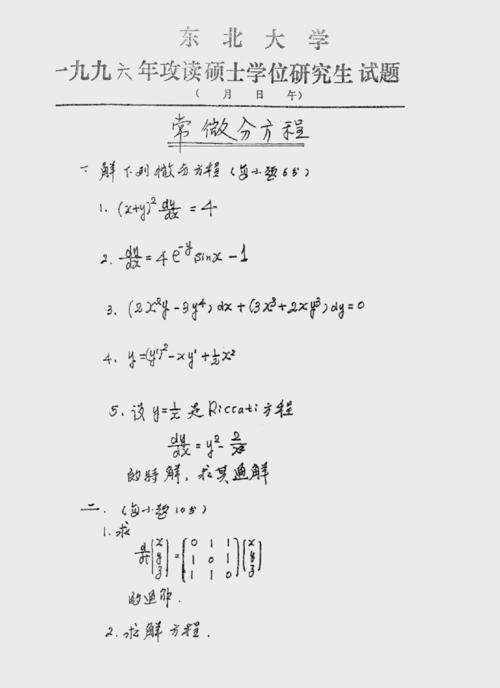 东北大学
一九九六年攻读硕士学位研究生试题
( 月 日 午)
常微分方程
一 解下列微分方程(每小题6分)
1. (x+y)² dy/dx = 4
2. dy/dx = 4e^{-y} sinx - 1
3. (2x²y - 3y⁴) dx + (3x³ + 2xy³) dy = 0
4. y = (y')² - xy' + ½x²
5. 设 y = 1/x 是 Riccati 方程
dy/dx = y² - 2/x²
的特解, 求其通解
二. (每小题10分)
1. 求
d/dt [x y z] = [0 1 1 1 0 1 1 1 0] [x y z]
的通解.
2. 求解方程.